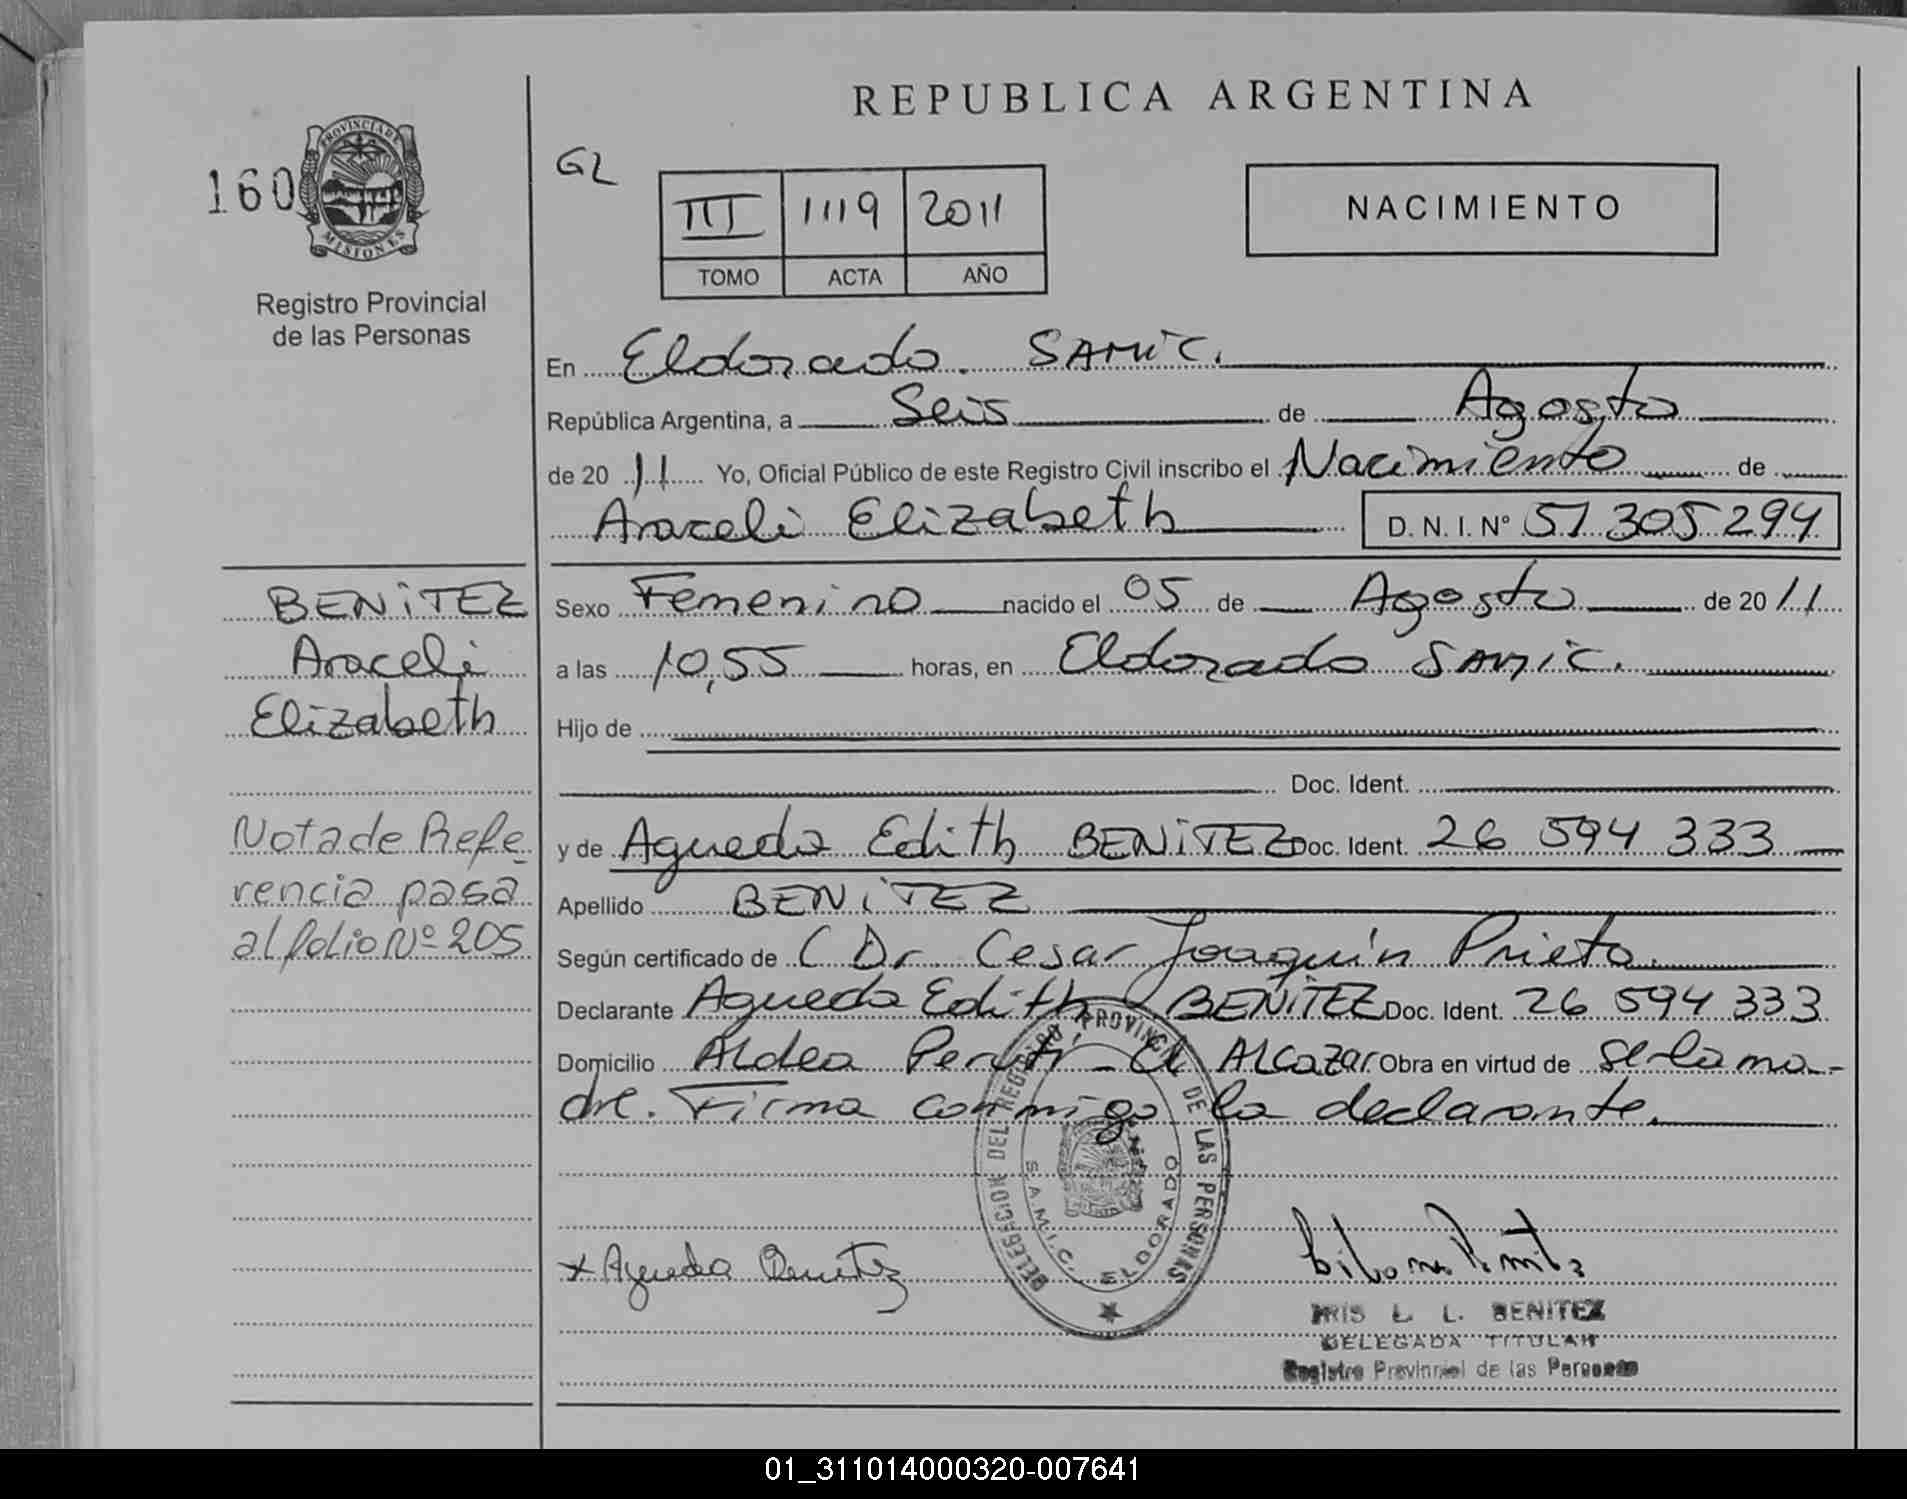 REPUBLICA ARGENTINA
160
PROVINCIA DE
MISIONES
Registro Provincial
de las Personas
GL
III 1119 2011
TOMO ACTA AÑO
NACIMIENTO
En Eldorado. SAMIC.
República Argentina, a Seis de Agosto
de 2011 Yo, Oficial Público de este Registro Civil inscribo el Nacimiento de
Araceli Elizabeth D. N. I. N° 51.305.294
BENITEZ
Araceli
Elizabeth
Nota de Refe-
rencia pasa
al folio Nº 205
Sexo Femenino nacido el 05 de Agosto de 2011
a las 10,55 horas, en Eldorado SAMIC.
Hijo de
Doc. Ident.
y de Agueda Edith BENITEZ Doc. Ident. 26 594 333
Apellido BENITEZ
Según certificado de C Dr. Cesar Joaquín Prieto.
Declarante Agueda Edith BENITEZ Doc. Ident. 26 594 333
Domicilio Aldea Perutí - El Alcazar Obra en virtud de ser la ma-
dre. Firma conmigo la declarante.
DELEGACION DEL REGISTRO PROVINCIAL DE LAS PERSONAS
S.A.M.I.C. ELDORADO
x Agueda Benitez
IRIS L. L. BENITEZ
DELEGADA TITULAR
Registro Provincial de las Personas
01_311014000320-007641